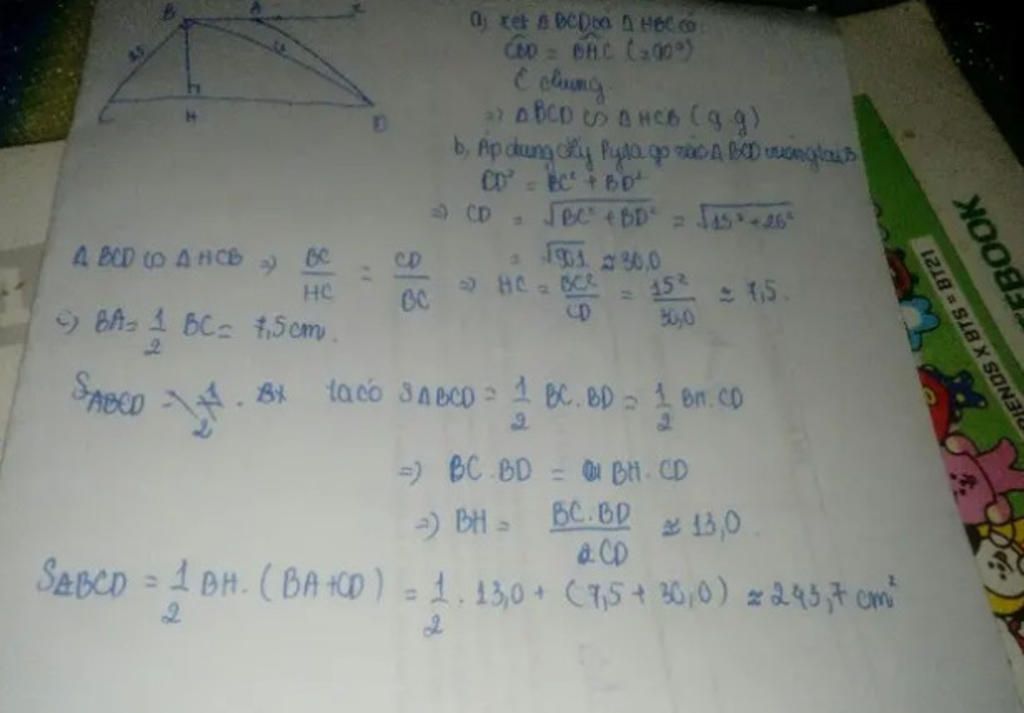 B A x
15
C H D
a) xét Δ BCD và Δ HBC có
CBD = BHC (=90°)
C chung
=> Δ BCD ∽ Δ HCB (g.g)
b, Áp dụng đlý Pytago vào Δ BCD vuông tại B
CD² = BC² + BD²
=> CD = √BC² + BD² = √15² + 26²
= √901 ≈ 30,0
Δ BCD ∽ Δ HCB => BC/HC = CD/BC => HC = BC²/CD = 15²/30,0 ≈ 7,5.
c) BA = 1/2 BC = 7,5cm.
SABCD = 1/2 . BH ta có SΔBCD = 1/2 BC.BD = 1/2 BH.CD
=> BC.BD = BH.CD
=> BH = BC.BD/2CD ≈ 13,0.
SABCD = 1/2 BH.(BA+CD) = 1/2 . 13,0 + (7,5 + 30,0) ≈ 243,7 cm²
EBOOK
IENDS X BTS = BT21